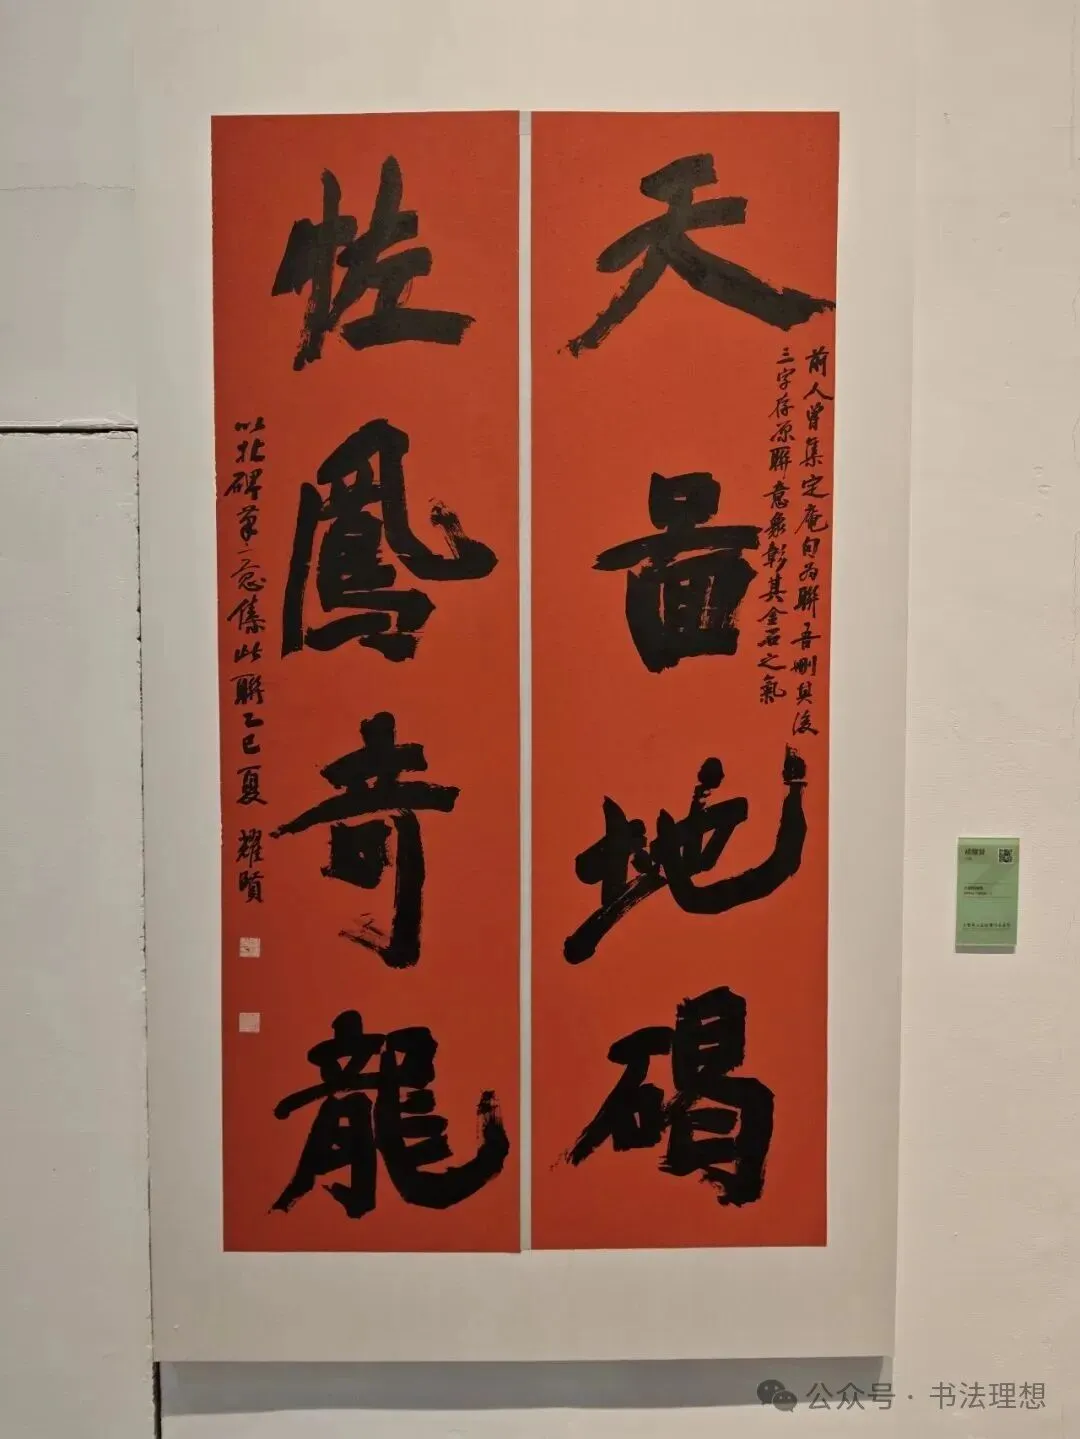 天啚地碣
前人曾集定庵句為聯吾刪其後
三字存原聯意象彰其金石之氣
恠鳳奇龍
以北碑筆意集此聯乙巳夏 耀賢
公众号 · 书法理想